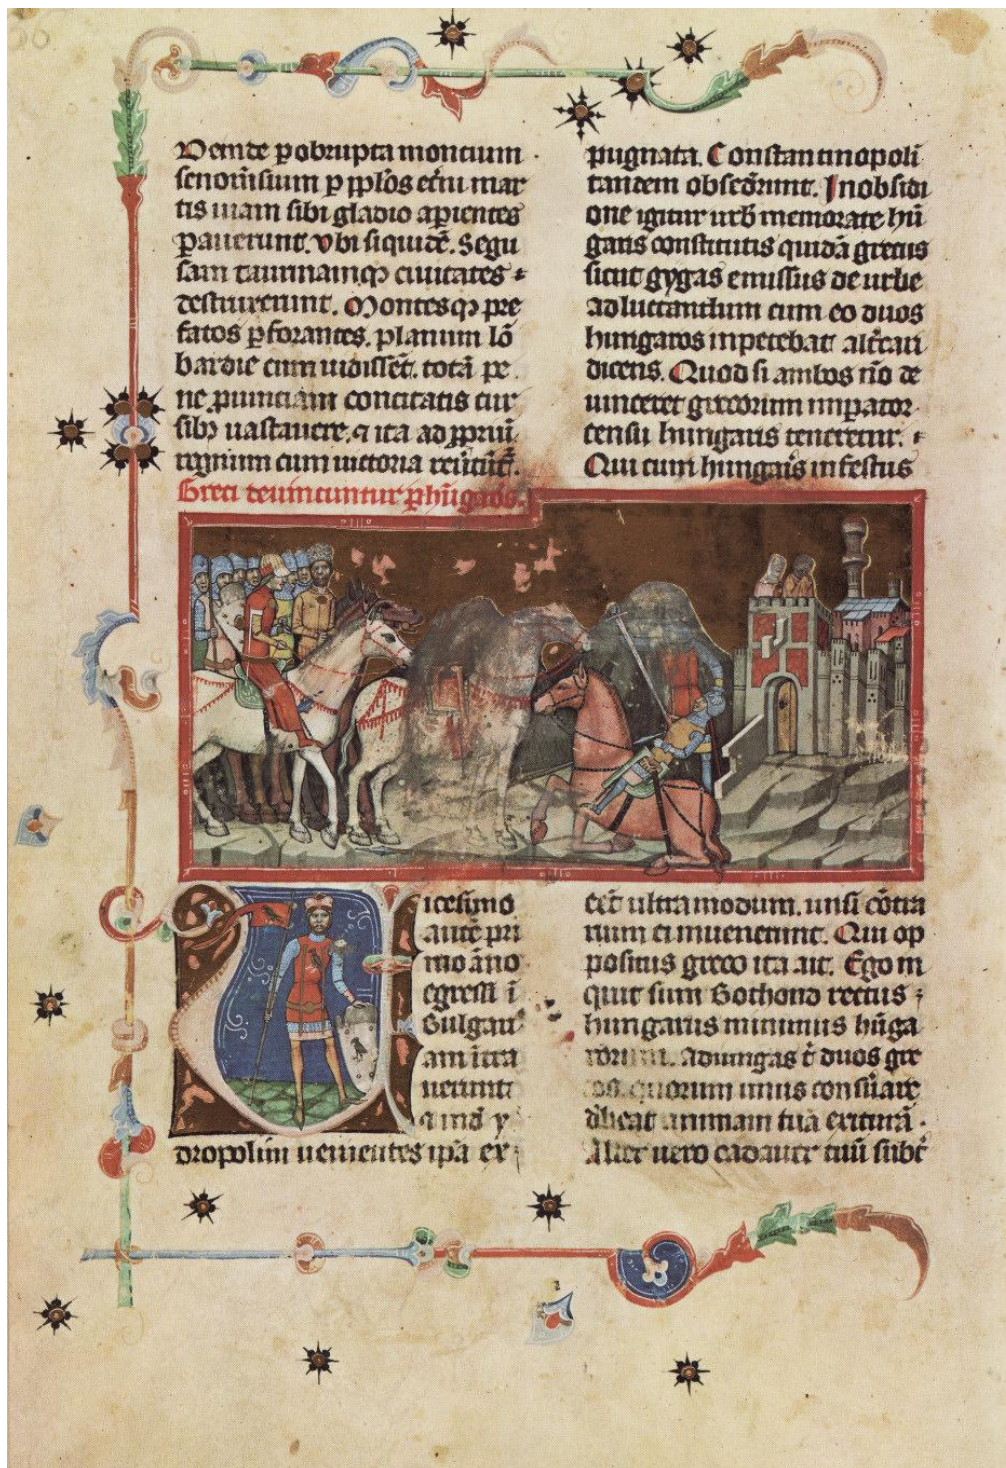 Deinde p obrupta moncium
senonẽsium p pp̃los et̃ni mar
tis uiam sibi gladio apientes
pauerunt. vbi siquidẽ. Segu
sam taurinamq; ciuitates
destruxerunt. Montesq; pre
fatos pforantes. planum lõ
bardie cum uidissẽt. totã pe
ne puinciam concitatis cur
sibꝫ uastauere. ⁊ ita ad ppriũ
regnum cum uictoria
Greci deuincuntur p hũgaros.
Vicesimo
autẽ pri
mo ãno
egressi ĩ
Bulgari
am intra
uerunt
dropolim uenientes ipã ex
pugnata. Constantinopoli
tandem obsedr̃unt. Jn obsidi
one igitur urb̃ memorate hũ
garis constitutis quidã grecus
sicut gygas emissus de urbe
ad luctandum cum eo duos
hungaros inpetebat
dicens. Quod si ambos ñõ de
uinceret grecorum impator
censu hungaris teneretur.
Qui cum hungaris infestus
eẽt ultra modum. unsi cõtra
rium ei inuenerunt. Qui op
positus greco ita ait. Ego in
quit sum Bothond rectus
hungarus minimus hũga
rorum. Adiungas t̃ duos gre
cos. quorum unus conseruare
debeat animam tuã exiturã
Alter uero cadauer tuũ